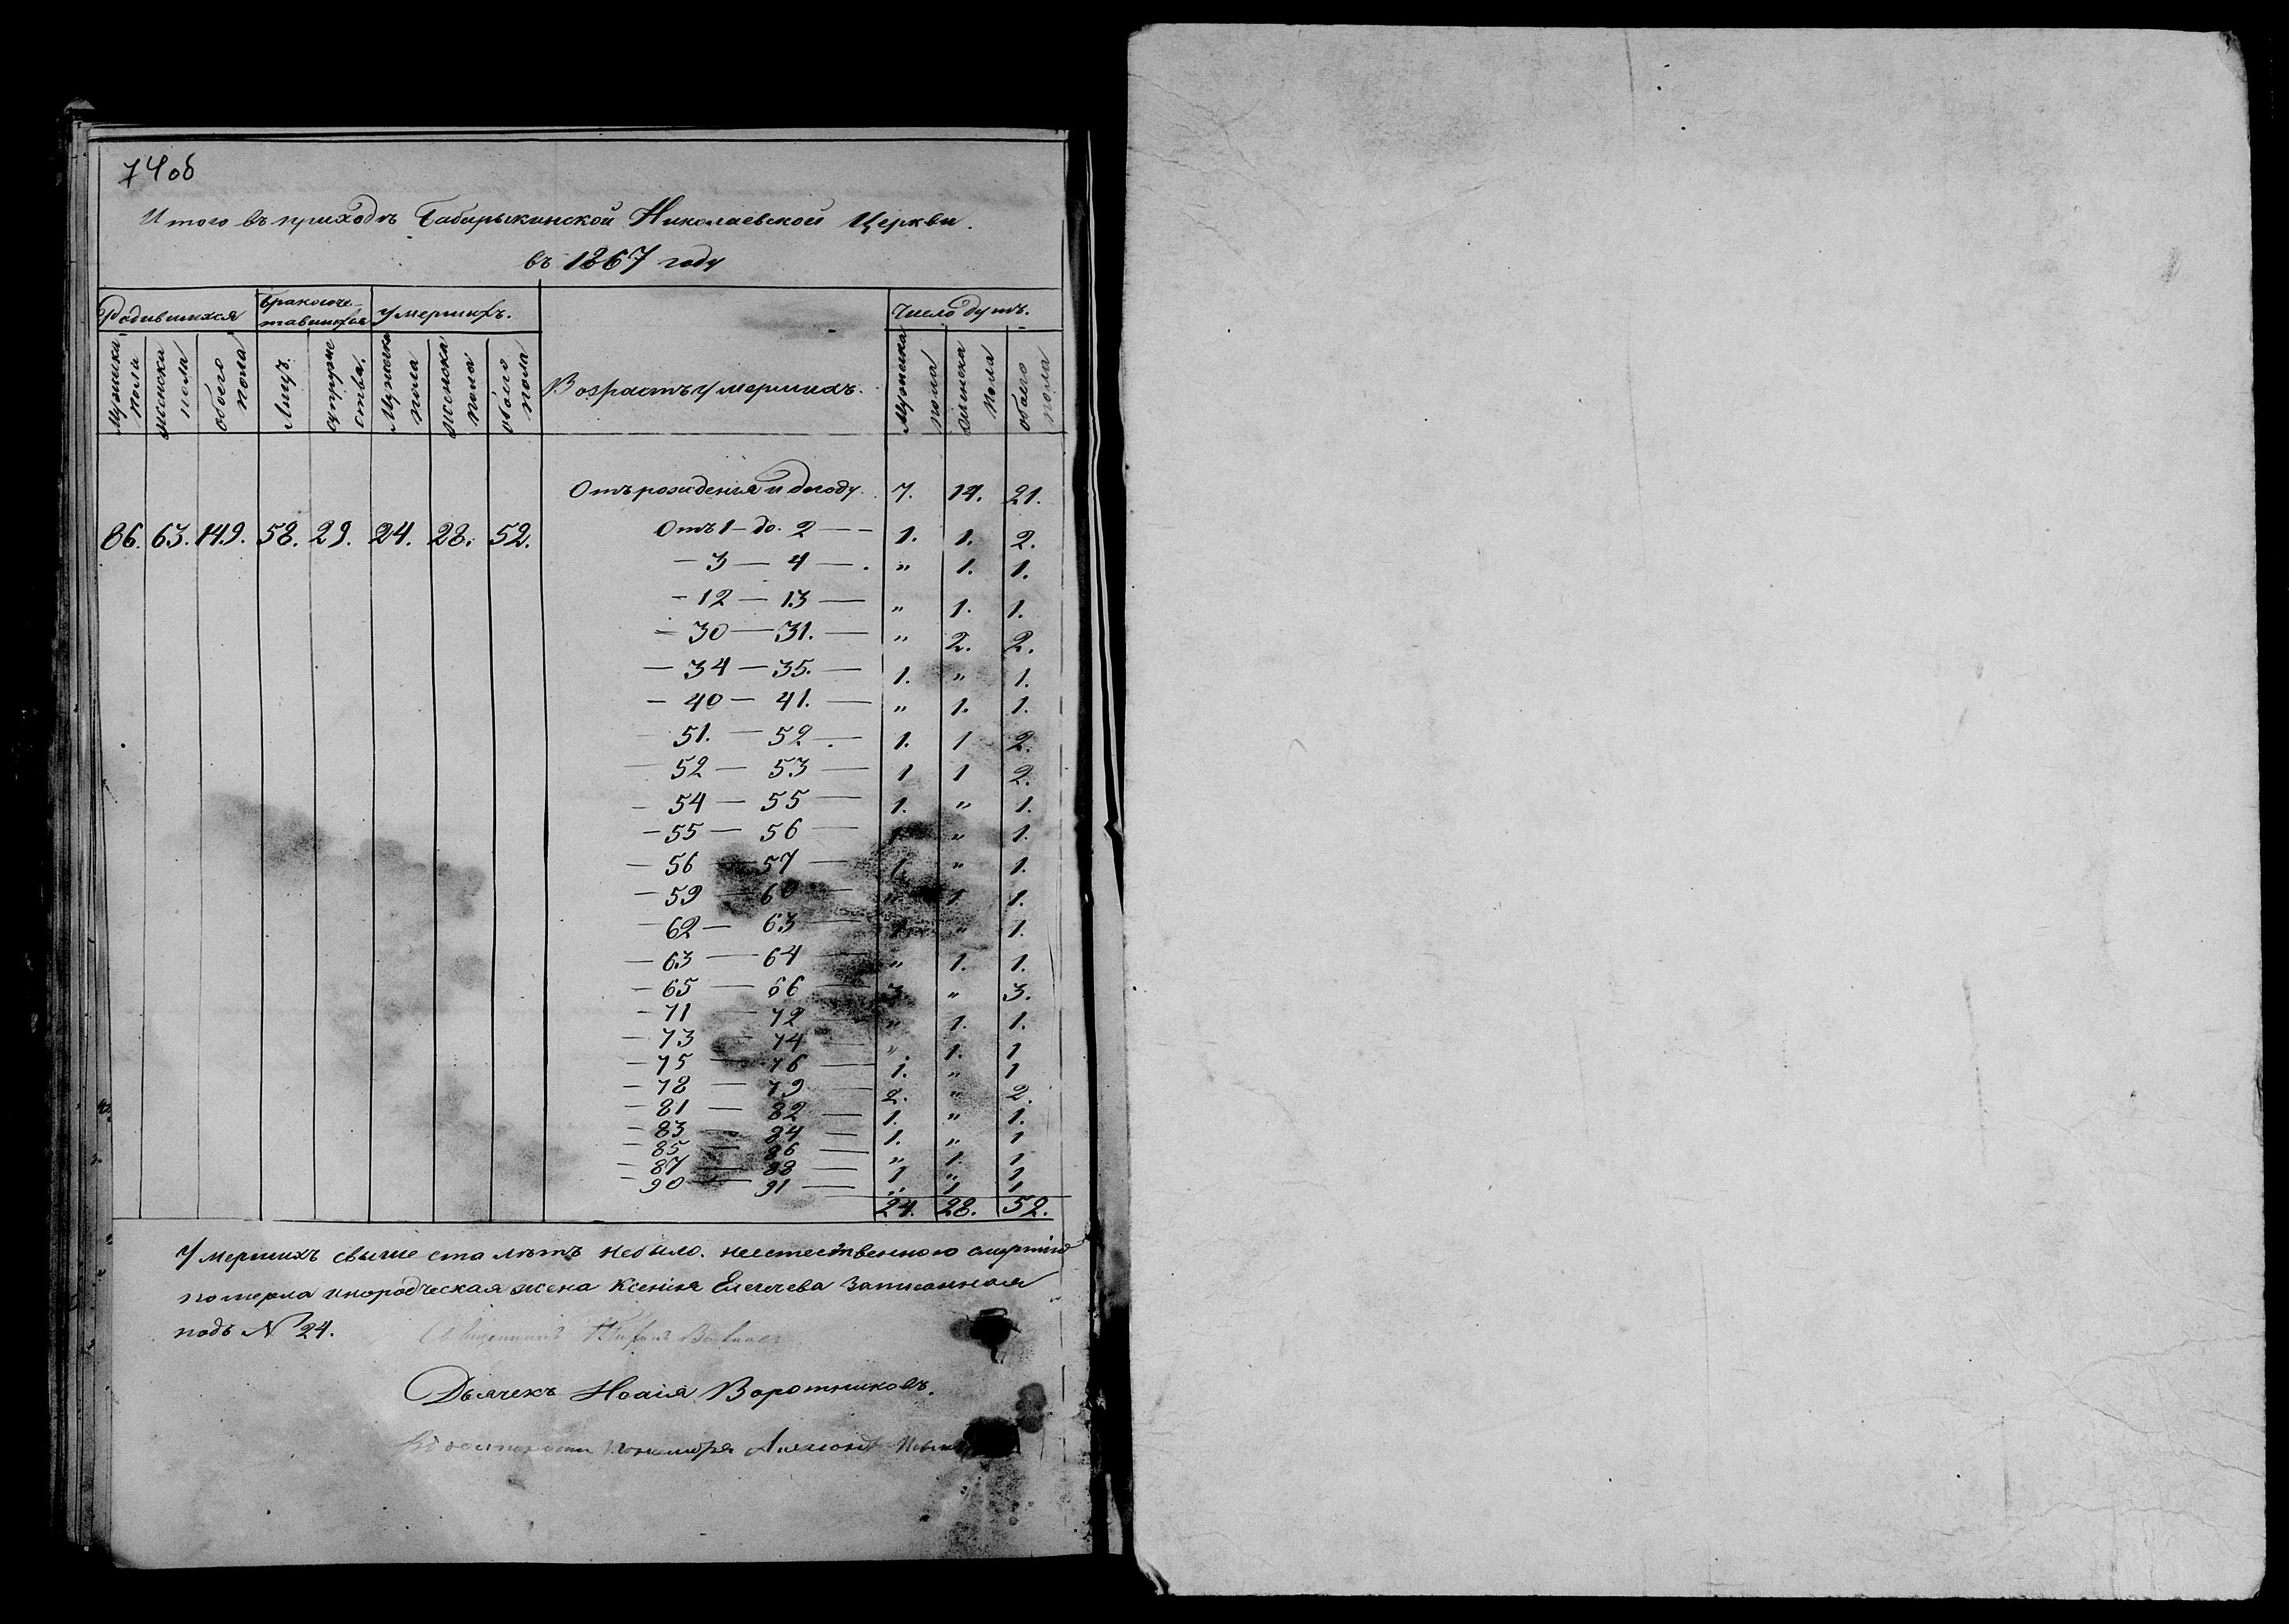 74 об
Итого въ приходѣ Бабарыкинской Николаевской Церкви.
въ 1867 году
Родившихся | Бракосоче-тавшихся | Умершихъ. | Возрастъ умершихъ. | Число душъ.
Мужеска пола | Женска пола | обоего пола | Лицъ. | супруже ства. | Мужеска пола | Женска пола | обоего пола | Мужеска пола | Женска пола | обоего пола
Отъ рожденія и до году. 7. 14. 21.
86. 63. 149. 58. 29. 24. 28. 52. Отъ 1 - до. 2 — 1. 1. 2.
— 3 — 4 — „ 1. 1.
— 12 — 13 — „ 1. 1.
— 30 — 31. — „ 2. 2.
— 34 — 35. — 1. „ 1.
— 40 — 41. — „ 1. 1.
— 51. — 52. — 1. 1 2.
— 52 — 53 — 1 1 2.
— 54 — 55 — 1. „ 1.
— 55 — 56 — 1. „ 1.
— 56 — 57 — 1. „ 1.
— 59 — 60 — „ 1 1.
— 62 — 63 — 1 „ 1.
— 63 — 64 — „ 1. 1.
— 65 — 66 — 3 „ 3.
— 71 — 72 — „ 1. 1.
— 73 — 74 — „ 1. 1
— 75 — 76 — 1. „ 1
— 78 — 79 — 2. „ 2.
— 81 — 82 — 1. „ 1.
— 83 — 84 — 1. „ 1
— 85 — 86 — „ 1. 1
— 87 — 88 — 1 „ 1
— 90 — 91 — „ 1 1
24. 28. 52.
Умершихъ свыше ста лѣтъ небыло. неестественною смертію
померла инородческая жена Ксенія Елечева Записанная
подъ № 24.
Священникъ
Дьячекъ Исаія Воротниковъ.
Въ должности Пономаря